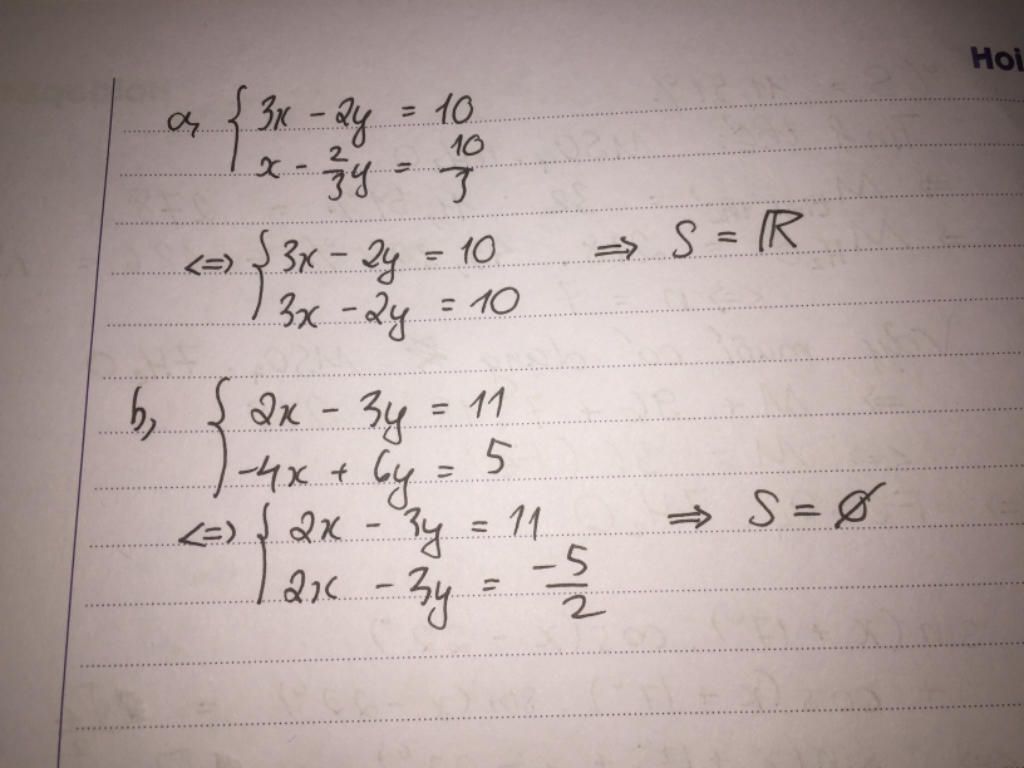 Hoi
a, { 3x - 2y = 10
x - 2/3 y = 10/3
<=> { 3x - 2y = 10 => S = ℝ
3x - 2y = 10
b, { 2x - 3y = 11
-4x + 6y = 5
<=> { 2x - 3y = 11 => S = ∅
2x - 3y = -5/2